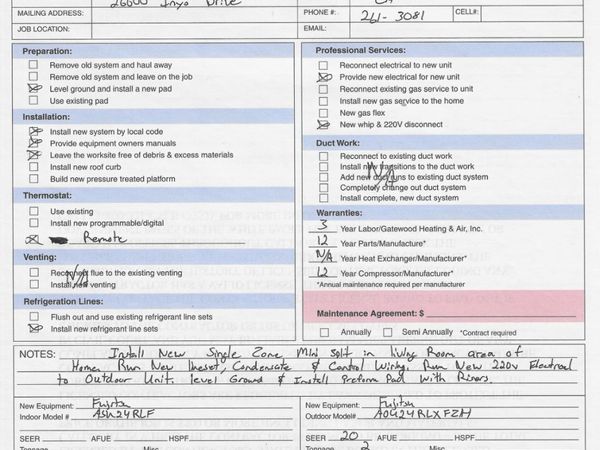 26600 Inyo Drive CA
MAILING ADDRESS: PHONE #: 261-3081 CELL#:
JOB LOCATION: EMAIL:
Preparation:
Remove old system and haul away
Remove old system and leave on the job
Level ground and install a new pad
Use existing pad
Installation:
Install new system by local code
Provide equipment owners manuals
Leave the worksite free of debris & excess materials
Install new roof curb
Build new pressure treated platform
Thermostat:
Use existing
Install new programmable/digital
Remote
Venting:
Reconnect flue to the existing venting
N/A
Install new venting
Refrigeration Lines:
Flush out and use existing refrigerant line sets
Install new refrigerant line sets
Professional Services:
Reconnect electrical to new unit
Provide new electrical for new unit
Reconnect existing gas service to unit
Install new gas service to the home
New gas flex
New whip & 220V disconnect
Duct Work:
Reconnect to existing duct work
Install new transitions to the duct work
N/A
Add new ductruns to existing duct system
Completely change out duct system
Install complete, new duct system
Warranties:
3 Year Labor/Gatewood Heating & Air, Inc.
12 Year Parts/Manufacture*
N/A Year Heat Exchanger/Manufacture*
12 Year Compressor/Manufacture*
*Annual maintenance required per manufacturer
Maintenance Agreement: $
Annually Semi Annually *Contract required
NOTES: Install New Single Zone Mini Split in living Room area of
Home. Run New lineset, Condensate & Control Wiring. Run New 220v Electrical
to Outdoor Unit. level Ground & Install Preform Pad with Risers.
New Equipment: Fujitsu
Indoor Model # ASU24RLF
SEER AFUE HSPF
Tonnage Misc.
New Equipment: Fujitsu
Outdoor Model# AOG24RLXFZH
SEER 20 AFUE HSPF
Tonnage 2 Misc.